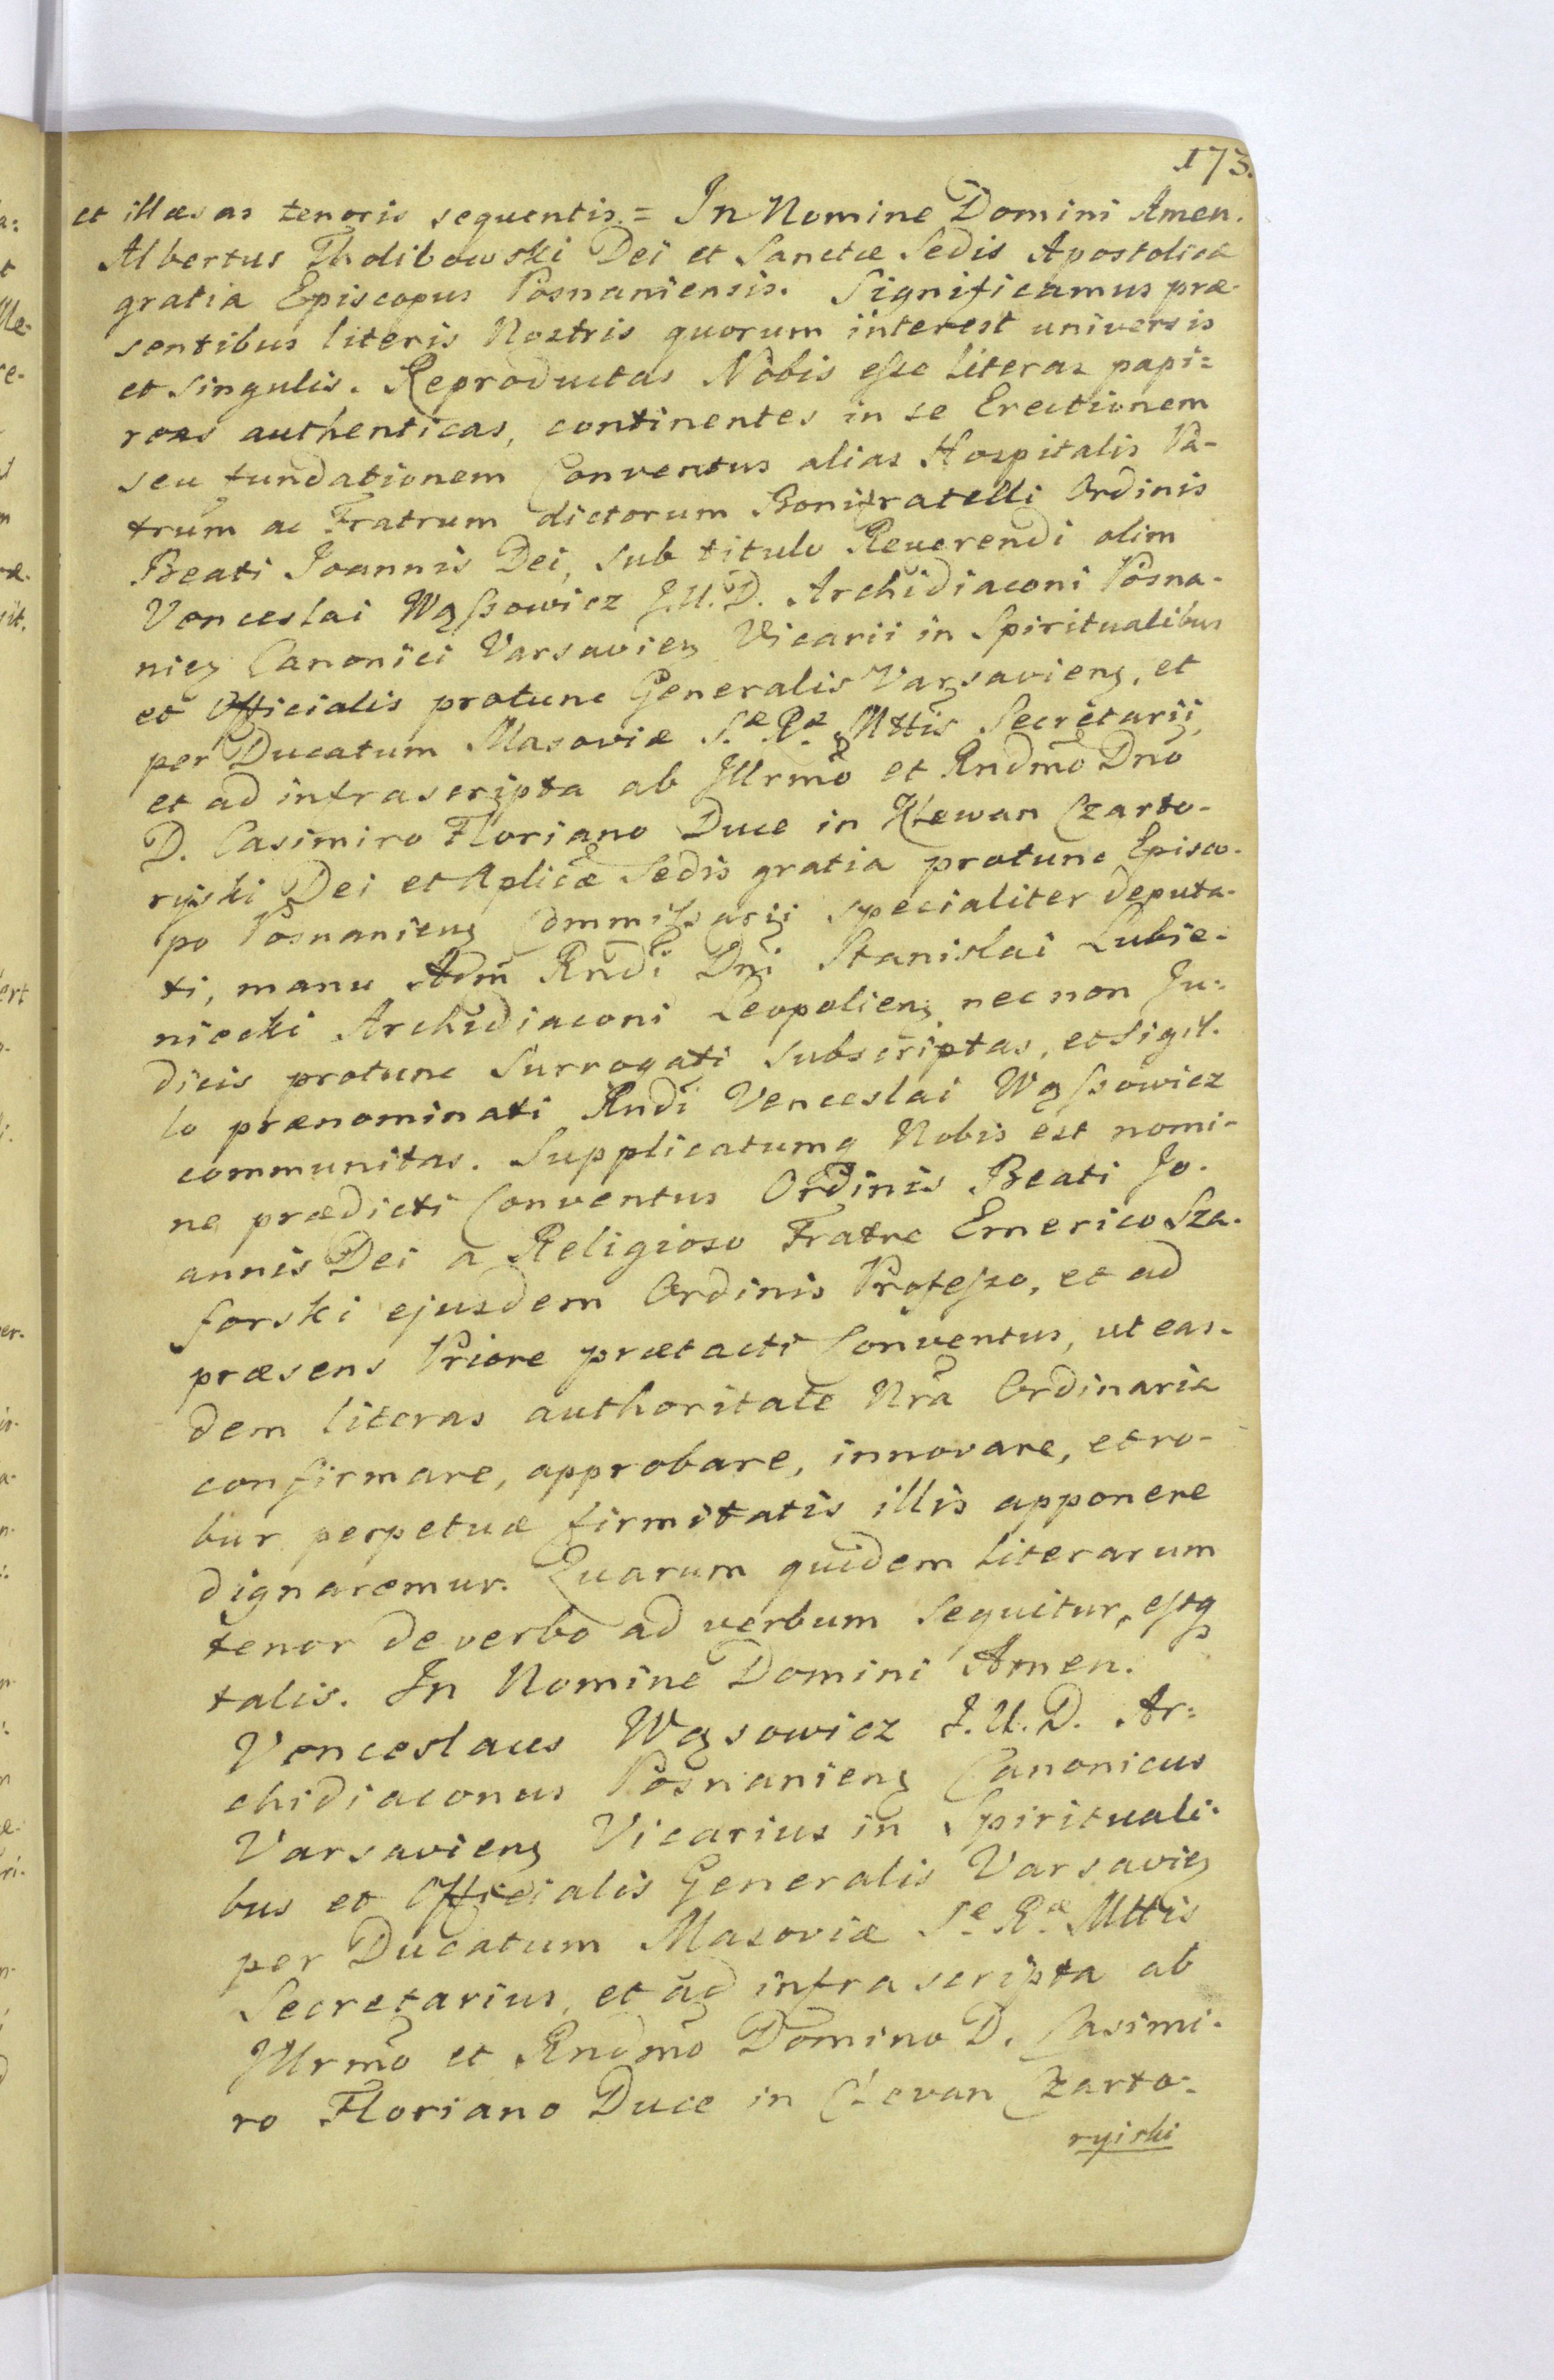 173.
et illæsas tenoris sequentis = In Nomine Domini Amen.
Albertus Tholibowski Dei et Sanctæ Sedis Apostolicæ
gratia Episcopus Posnaniensis. Significamus præ-
sentibus literis Nostris quorum interest universis
et singulis. Reproductas Nobis esse literas papi=
reas authenticas, continentes in se Erectionem
seu fundationem Conventus alias Hospitalis Pa-
trum ac Fratrum dictorum Bonifratelli Ordinis
Beati Joannis Dei, sub titulo Reverendi olim
Venceslai Wąssowicz J.U.D. Archidiaconi Posna-
nieņ Canonici Varsavieņ Vicarii in Spiritualibus
et Officialis protunc Generalis Varsavienȝ, et
per Ducatum Masoviæ S.æ R.æ Mttis Secretarii,
et ad infrascripta ab Illrmo et Rndmo Dno
D. Casimiro Floriano Duce in Klewan Czarto-
ryiski Dei et Aplicæ Sedis gratia protunc Episco-
po Posnanienȝ Commissarii specialiter deputa-
ti, manu Adm Rndi Dni Stanislai Lubie-
niecki Archidiaconi Leopolienȝ nec non Ju-
dicis protunc Surrogati subscriptas, et sigil-
lo prænominati Rndi Venceslai Wąssowicz
communitas. Supplicatumq Nobis est nomi-
ne prædicti Conventus Ordinis Beati Jo-
annis Dei a Religioso Fratre Emerico Sza-
forski ejusdem Ordinis Professo, et ad
præsens Priore prætacti Conventus, ut eas-
dem literas authoritate Nrã Ordinaria
confirmare, approbare, innovare, et ro-
bur perpetuæ firmitatis illis apponere
dignaremur. Quarum quidem literarum
tenor de verbo ad verbum sequitur, estq
talis. In Nomine Domini Amen.
Venceslaus Wąsowicz J.U.D. Ar=
chidiaconus Posnanienȝ Canonicus
Varsavienȝ Vicarius in Spirituali-
bus et Officialis Generalis Varsavieȝ
per Ducatum Masoviæ S.æ R.æ Mttis
Secretarius, et ad infra scripta ab
Illrmo et Rndmo Domino D. Casimi-
ro Floriano Duce in Clevan Czarto-
ryiski